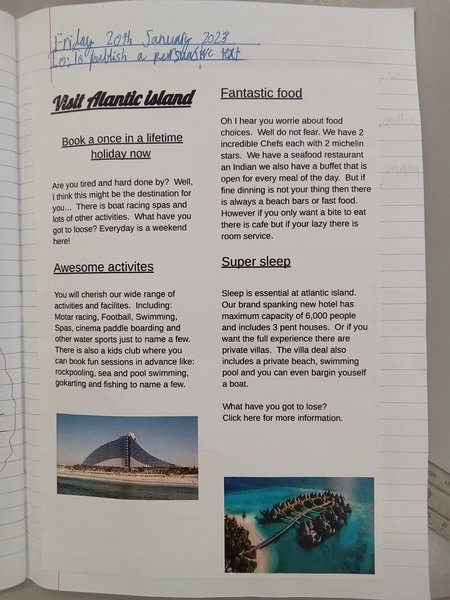 Friday 20th January 2023
Lo: To publish a persuasive text
Visit Alantic island
Book a once in a lifetime
holiday now
Are you tired and hard done by?  Well,
I think this might be the destination for
you…  There is boat racing spas and
lots of other activities.  What have you
got to loose? Everyday is a weekend
here!
Awesome activites
You will cherish our wide range of
activities and facilites.  Including:
Motar racing, Football, Swimming,
Spas, cinema paddle boarding and
other water sports just to name a few.
There is also a kids club where you
can book fun sessions in advance like:
rockpooling, sea and pool swimming,
gokarting and fishing to name a few.
Fantastic food
Oh I hear you worrie about food
choices.  Well do not fear. We have 2
incredible Chefs each with 2 michelin
stars.  We have a seafood restaurant
an Indian we also have a buffet that is
open for every meal of the day.  But if
fine dinning is not your thing then there
is always a beach bars or fast food.
However if you only want a bite to eat
there is cafe but if your lazy there is
room service.
Super sleep
Sleep is essential at atlantic island.
Our brand spanking new hotel has
maximum capacity of 6,000 people
and includes 3 pent houses.  Or if you
want the full experience there are
private villas.  The villa deal also
includes a private beach, swimming
pool and you can even bargin youself
a boat.
What have you got to lose?
Click here for more information.